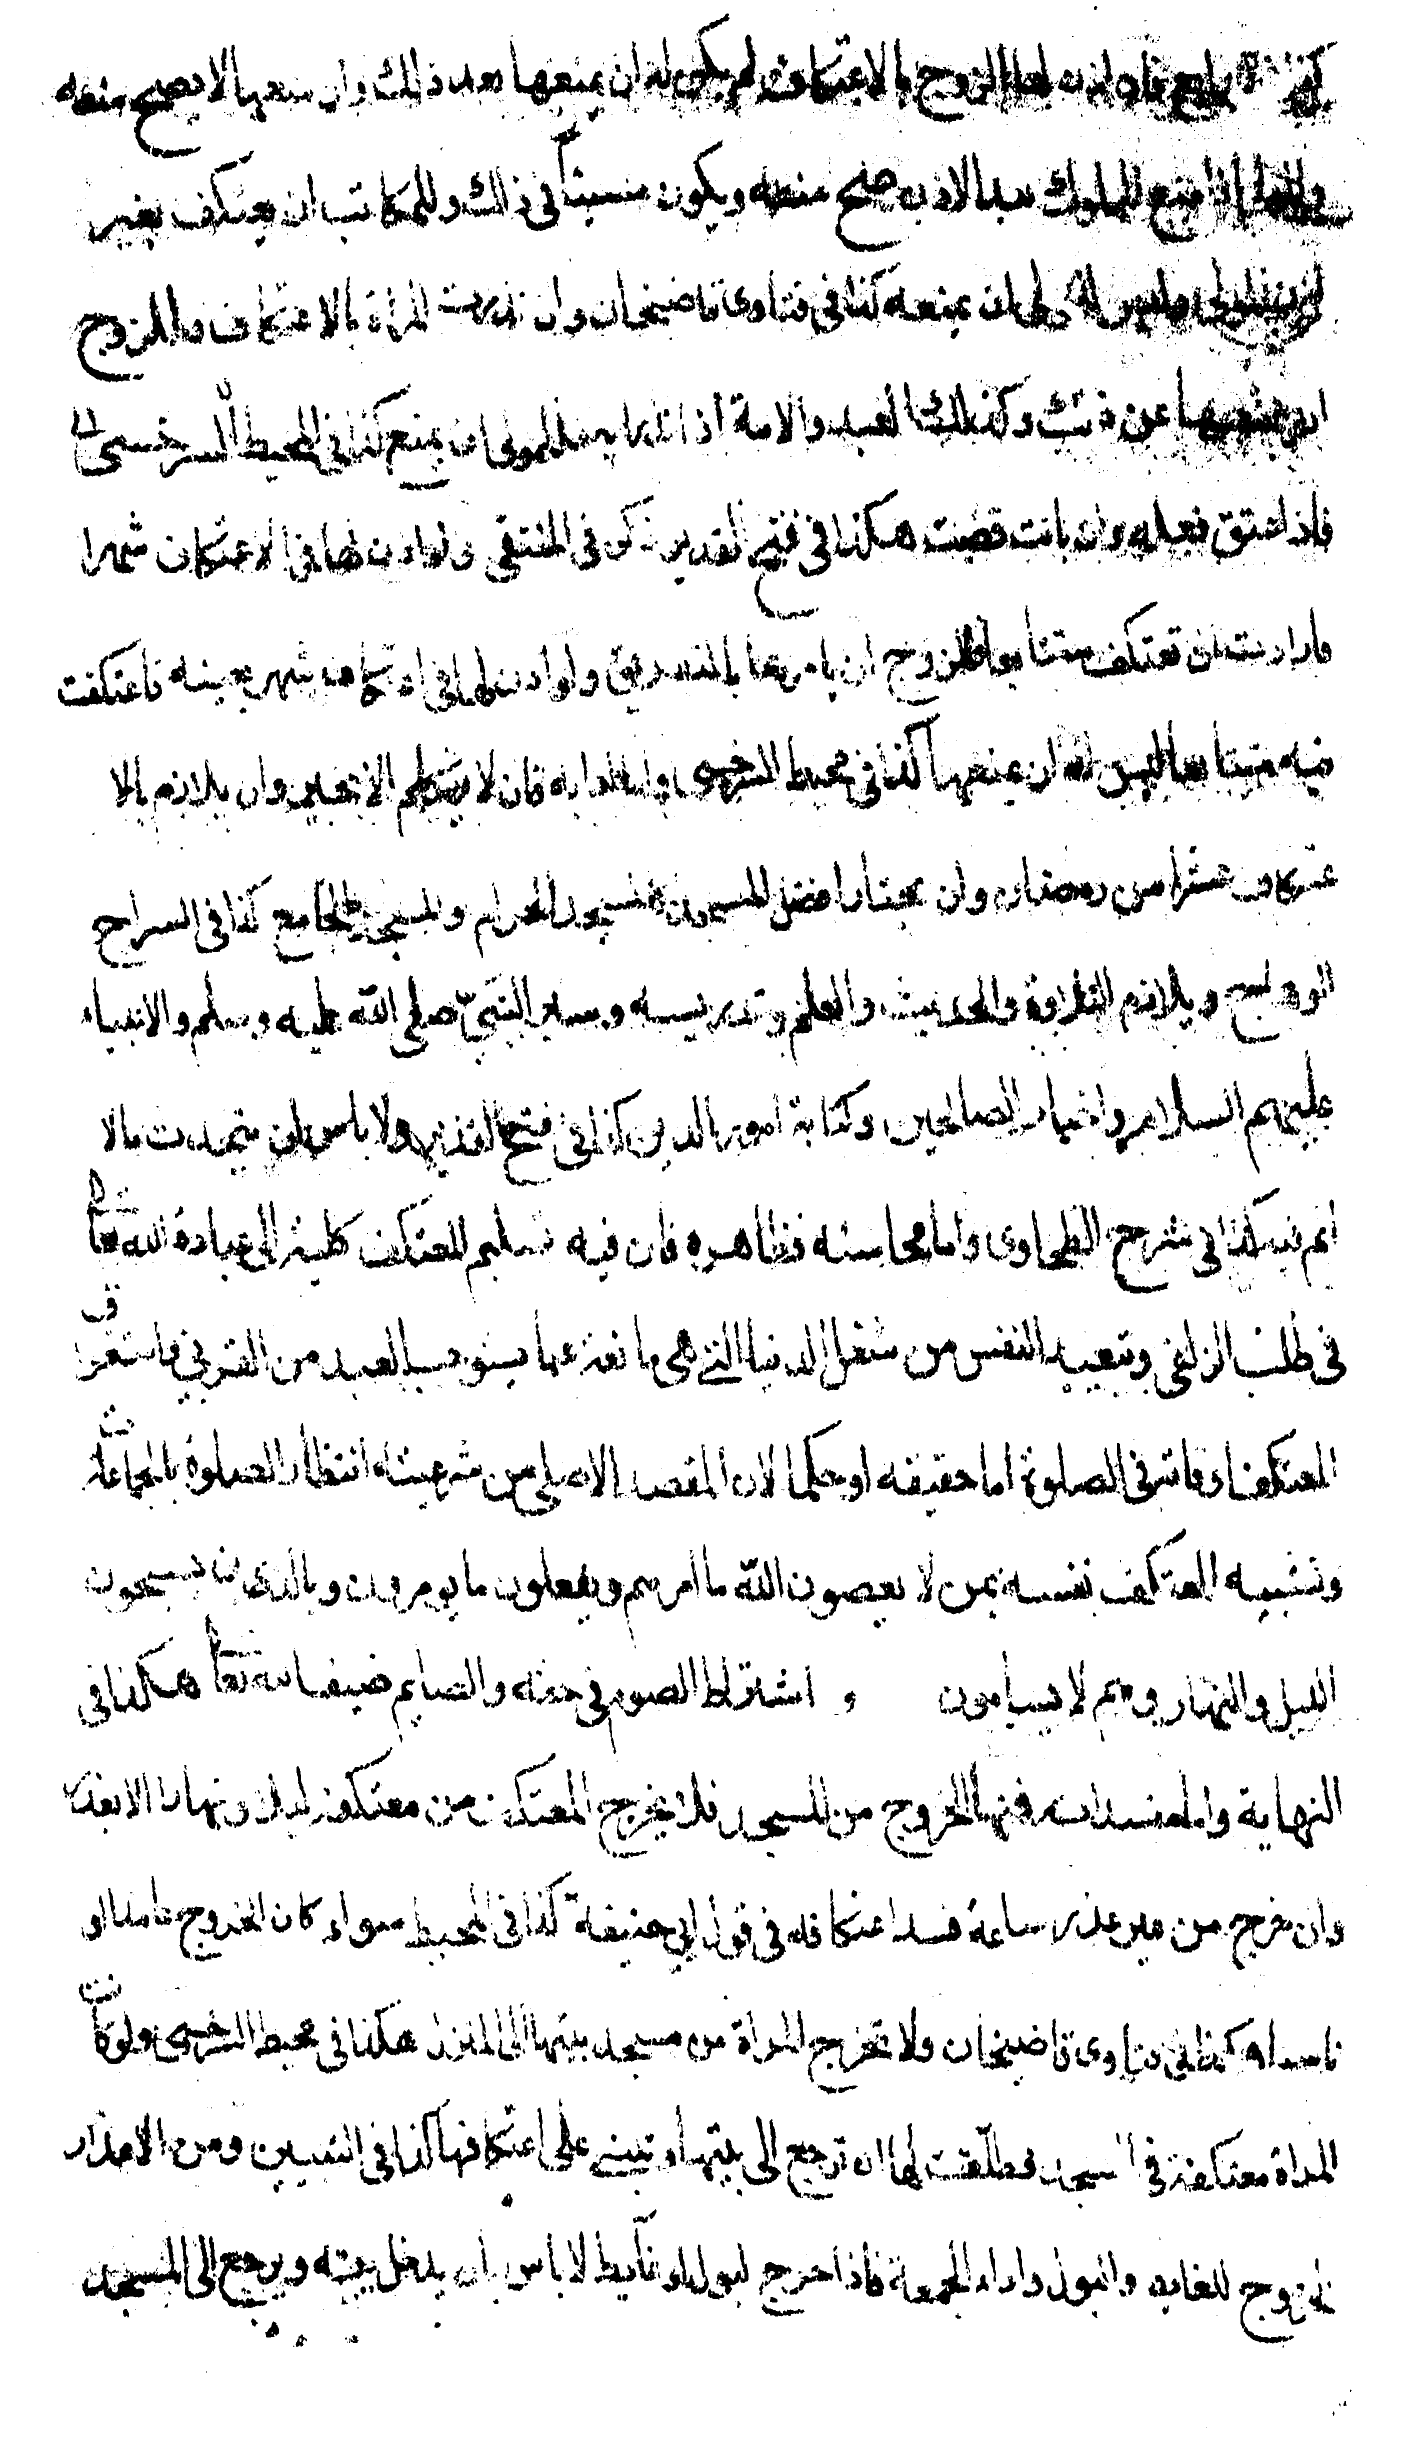 فان اذن لها الزوج بالاعتكاف لم يكن له ان يمنعها بعد ذلك وان منعها لا يصح منعه
والمولى اذا منع المملوك بعد الاذن صح منعه ويكون مسيئاً في ذلك وللمكاتب ان يعتكف بغير
اذن المولى وليس للمولى ان يمنعه كذا في فتاوى قاضيخان وان نذرت المراة بالاعتكاف فللزوج
ان يمنعها عن ذلك وكذلك العبد والامة اذا نذرا فللمولى ان يمنع كذا في المحيط السرخسي
فاذا عتق فعليه وان بانت قضت هكذا في فتح القدير ذكر في المنتقى ولو اذن لها في الاعتكاف شهرا
فارادت ان تعتكف متتابعا فللزوج ان يامرها بالتفريق ولو اذن لها في اعتكاف شهر بعينه فاعتكفت
فيه متتابعا ليس له ان يمنعها كذا في محيط السرخسي واما ادابه فان لا يتكلم الا بخير وان يلازم بالا
عتكاف عشرا من رمضان وان يختار افضل المسجد كالمسجد الحرام والمسجد الجامع كذا في السراج
الوهاج ويلازم التلاوة والحديث والعلم وتدريسه وسير النبي صلى الله عليه وسلم والانبياء
عليهم السلام واخبار الصالحين وكتابة امور الدين كذا في فتح القدير ولا باس ان يتحدث بما لا
اثم فيه كذا في شرح الطحاوي واما محاسنه فظاهره فان فيه تسليم المعتكف كليته الى عبادة الله تعا
في طلب الزلفى وتبعيد النفس من شغل الدنيا التي هي مانعة عما يستوجب العبد من القربى واستغراق
المعتكف اوقاته في الصلوة اما حقيقه او حكما لان المقصد الاصلي من شرعيته انتظار الصلوة بالجماعة
وتشبيه المعتكف نفسه بمن لا يعصون الله ما امرهم ويفعلون ما يومرون وبالذين يسبحون
الليل والنهار وهم لا يسأمون و اشتراط الصوم في حقه والصايم ضيف الله تعا هكذا في
النهاية واما مفسداته فمنها الخروج من المسجد فلا يخرج المعتكف من معتكفه ليلا ونهارا الا بعذر
وان خرج من غير عذر ساعة فسد اعتكافه في قول ابي حنيفة كذا في المحيط سواء كان الخروج عامدا او
ناسيا هكذا في فتاوى قاضيخان ولا تخرج المراة من مسجد بيتها الى المنزل هكذا في محيط السرخسي ولو كانت
المراة معتكفة في المسجد فطلقت لها ان ترجع الى بيتها وتبني على اعتكافها كذا في التبيين ومن الاعذار
الخروج للغايط والبول واداء الجمعة فاذا خرج لبول او غايط لا باس بان يدخل بيته ويرجع الى المسجد